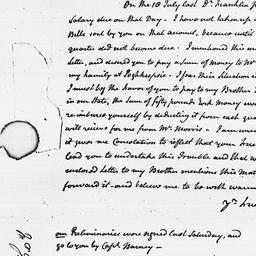 On the 10 July last Dr. Franklin
Salary due on that Day. I have not taken up
Bills sent by you on that account, because until
quarter did not become due. I mentioned this
Letter, and desired you to pay a Sum of money to Mr
my family at Poghkeepsie - I fear their Situation
I must beg the favor of you to pay to my Brother
in our State, the Sum of fifty pounds York money
re-imburse yourself by deducting it from each
will receive for me from Mr. Morris - I am
it gives me Consolation to reflect that your
lead you to undertake this Trouble and that
enclosed Letter to my Brother mentions this
forward it - and believe me to be with warm
Preliminaries were signed last Saturday, and
go to you by Capt. Barney -